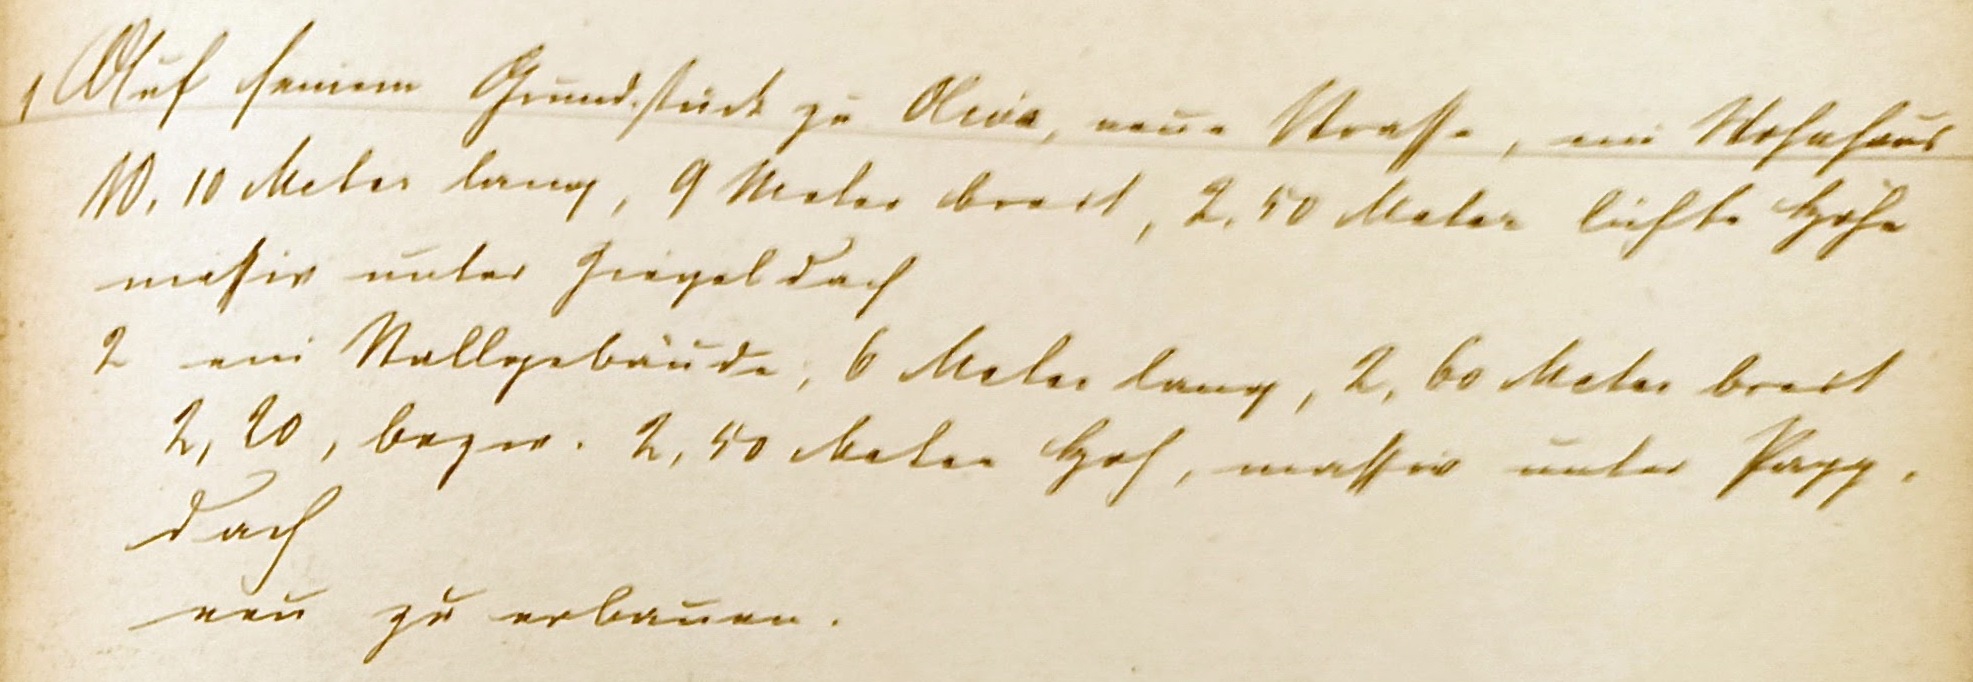 1 Auf seinem Grundstück zu Oliva, neue Strasse, ein Wohnhaus
10,10 Meter lang, 9 Meter breit, 2,50 Meter lichte Höhe
massiv unter Ziegeldach
2 ein Stallgebäude, 6 Meter lang, 2,60 Meter breit
2,20, bezw. 2,50 Meter hoch, massiv unter Papp-
dach
neu zu erbauen.